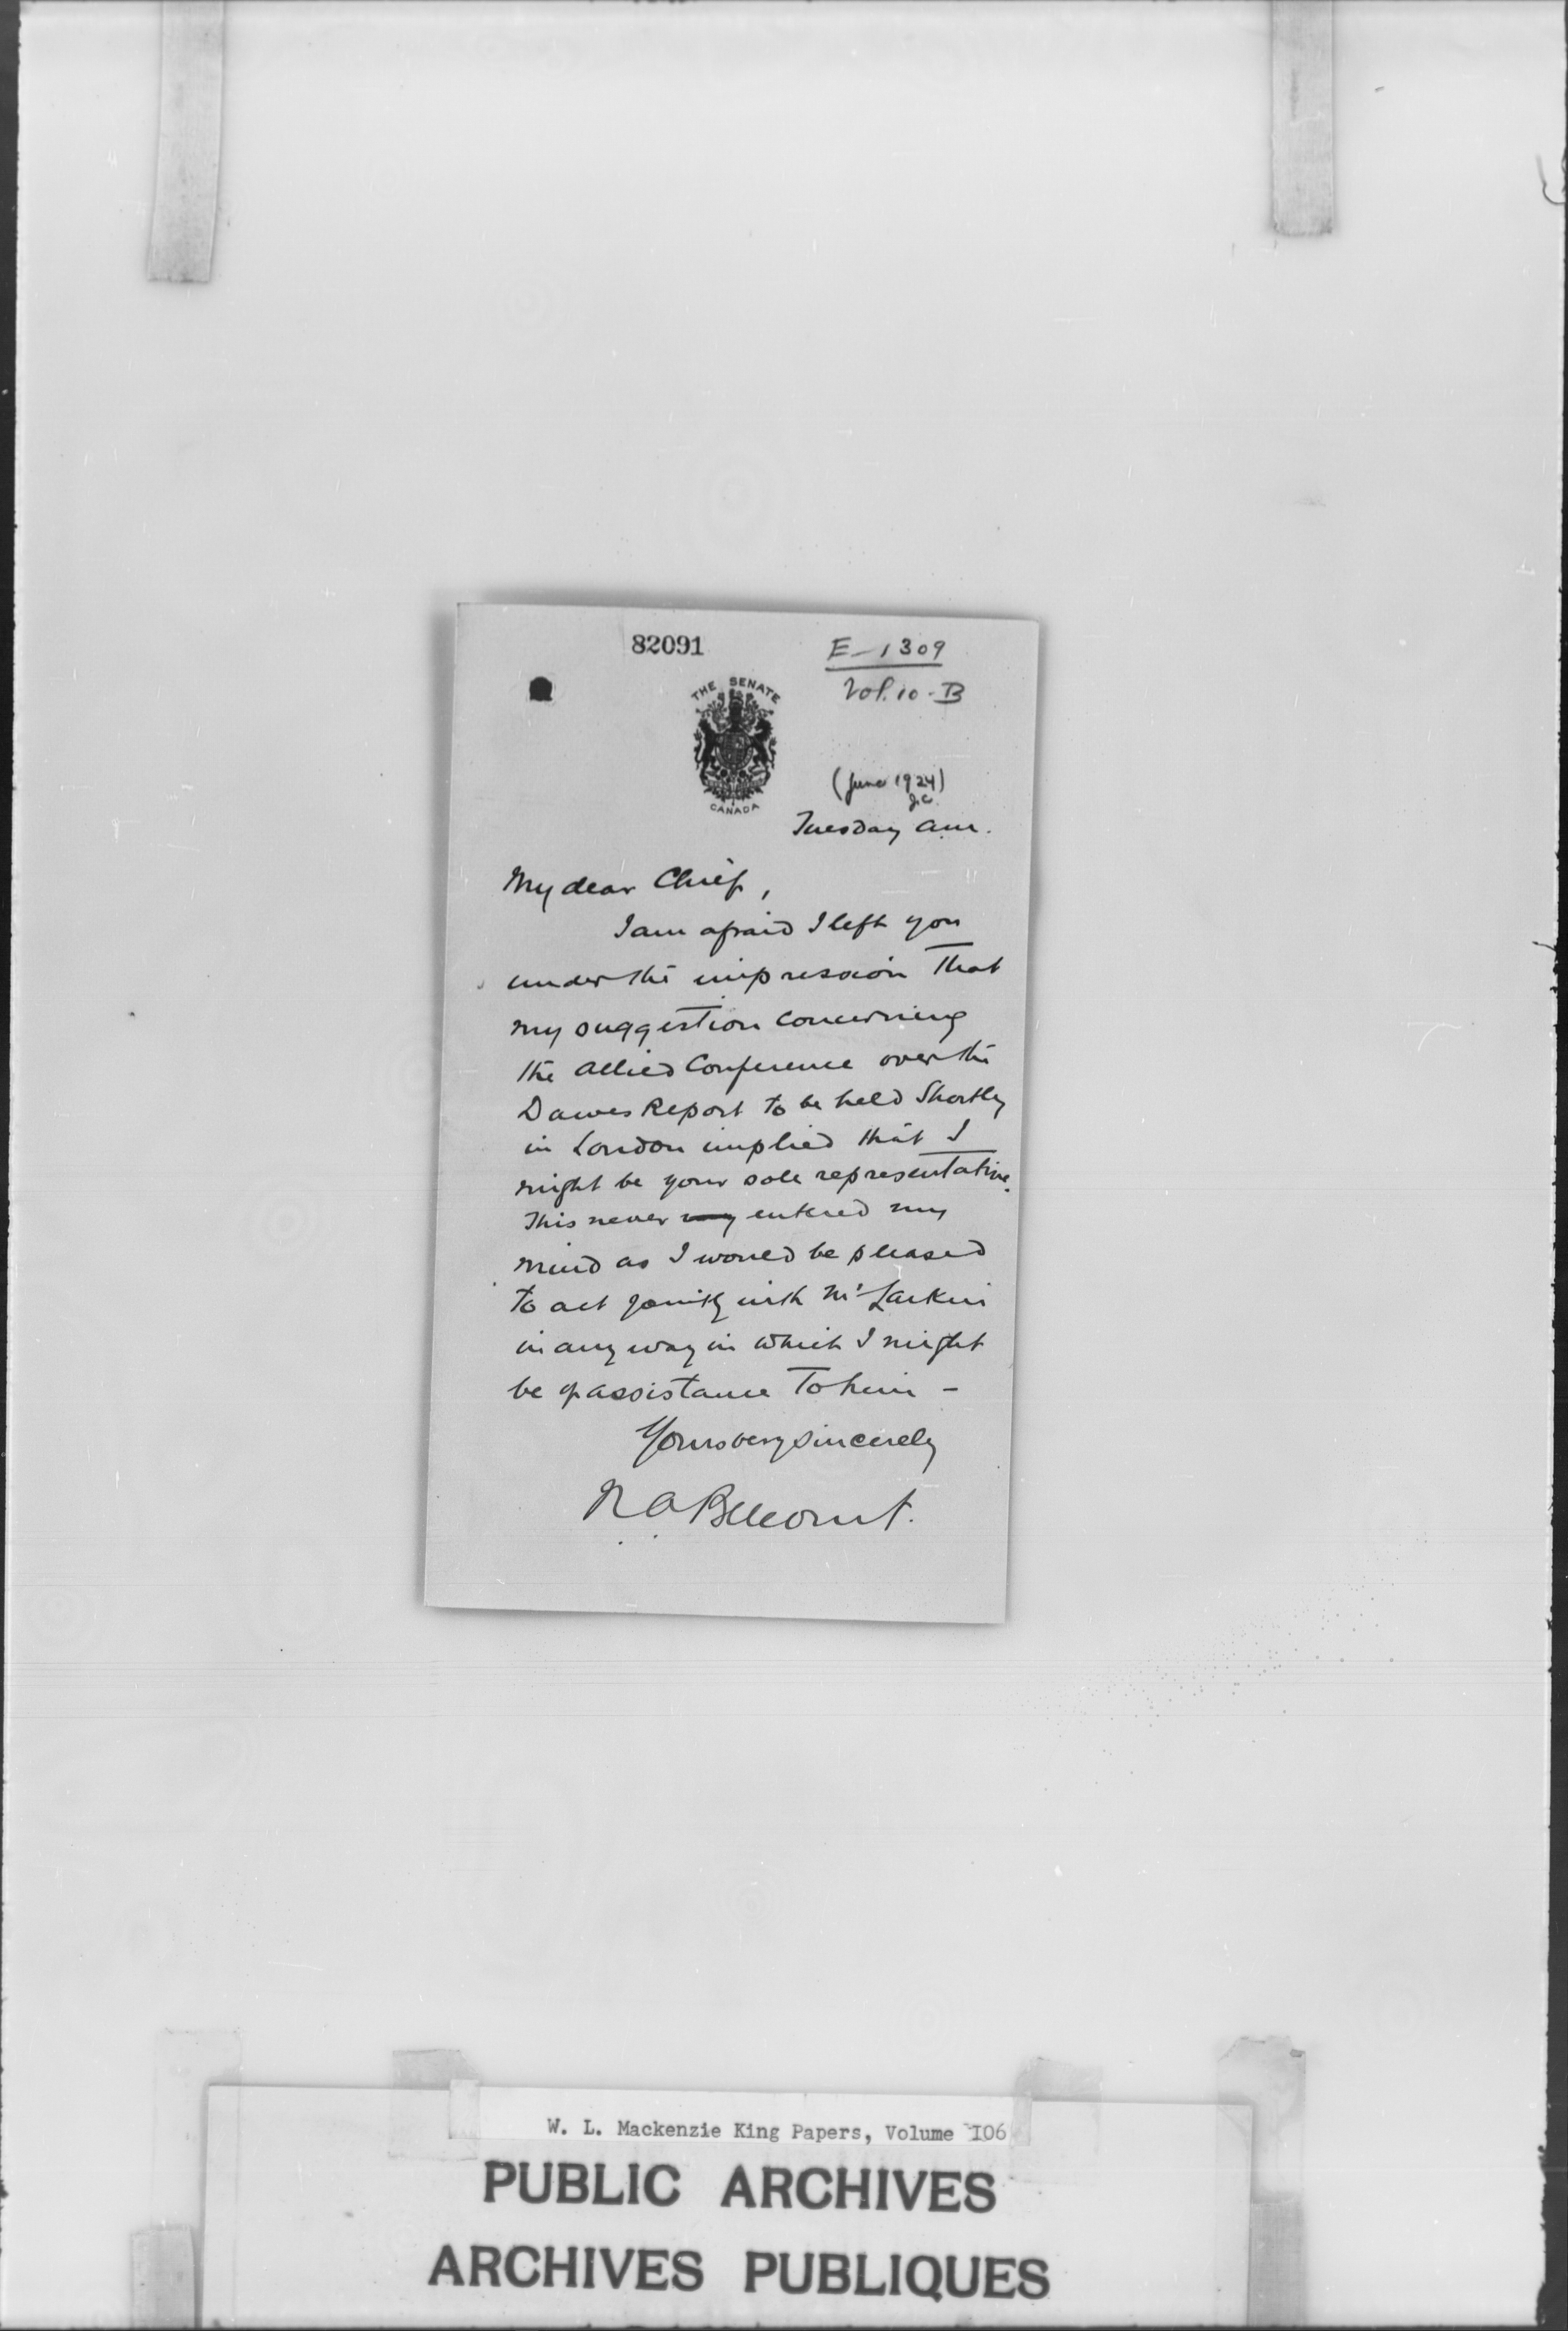 82091
E-1309
Vol. 10-B
THE SENATE
CANADA
(June 1924)
J.C.
Tuesday am.
My dear Chief,
I am afraid I left you
under the impression that
my suggestion concerning
the Allied Conference over the
Dawes Report to be held Shortly
in London implied that I
might be your sole representative.
This never entered my
mind as I would be pleased
to act jointly with Mr Larkin
in any way in which I might
be of assistance to him -
Yours very sincerely
N A Belcourt.
W. L. Mackenzie King Papers, Volume 106
PUBLIC ARCHIVES
ARCHIVES PUBLIQUES